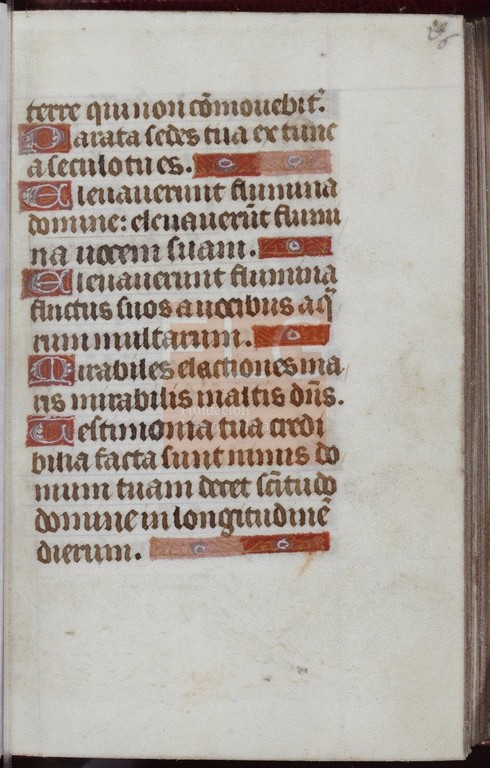 terre qui non cōmouebit̄.
Parata sedes tua ex tunc
a seculo tu es.
Eleuauerunt flumina
domine: eleuauerūt flumi
na uocem suam.
Eleuauerunt flumina
fluctus suos a uocibus aq̄
rum multarum.
Mirabiles elactiones ma
ris mirabilis in altis dn̄s.
Testimonia tua credi
bilia facta sunt nimis do
mum tuam decet sc̄itudo
domine in longitudinē
dierum.